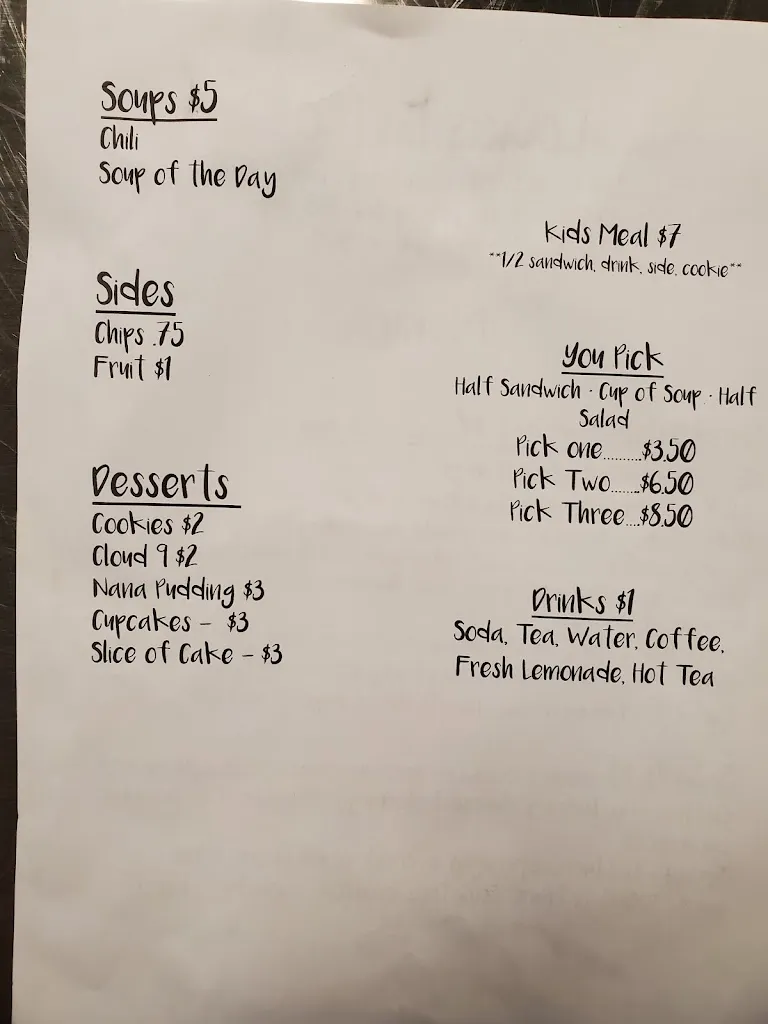 Soups $5
Chili
Soup of the Day
Sides
Chips .75
Fruit $1
Desserts
Cookies $2
Cloud 9 $2
Nana Pudding $3
Cupcakes - $3
Slice of Cake - $3
Kids Meal $7
**1/2 sandwich, drink, side, cookie**
You Pick
Half Sandwich · Cup of Soup · Half
Salad
Pick one.........$3.50
Pick Two.......$6.50
Pick Three....$8.50
Drinks $1
Soda, Tea, Water, Coffee,
Fresh Lemonade, Hot Tea